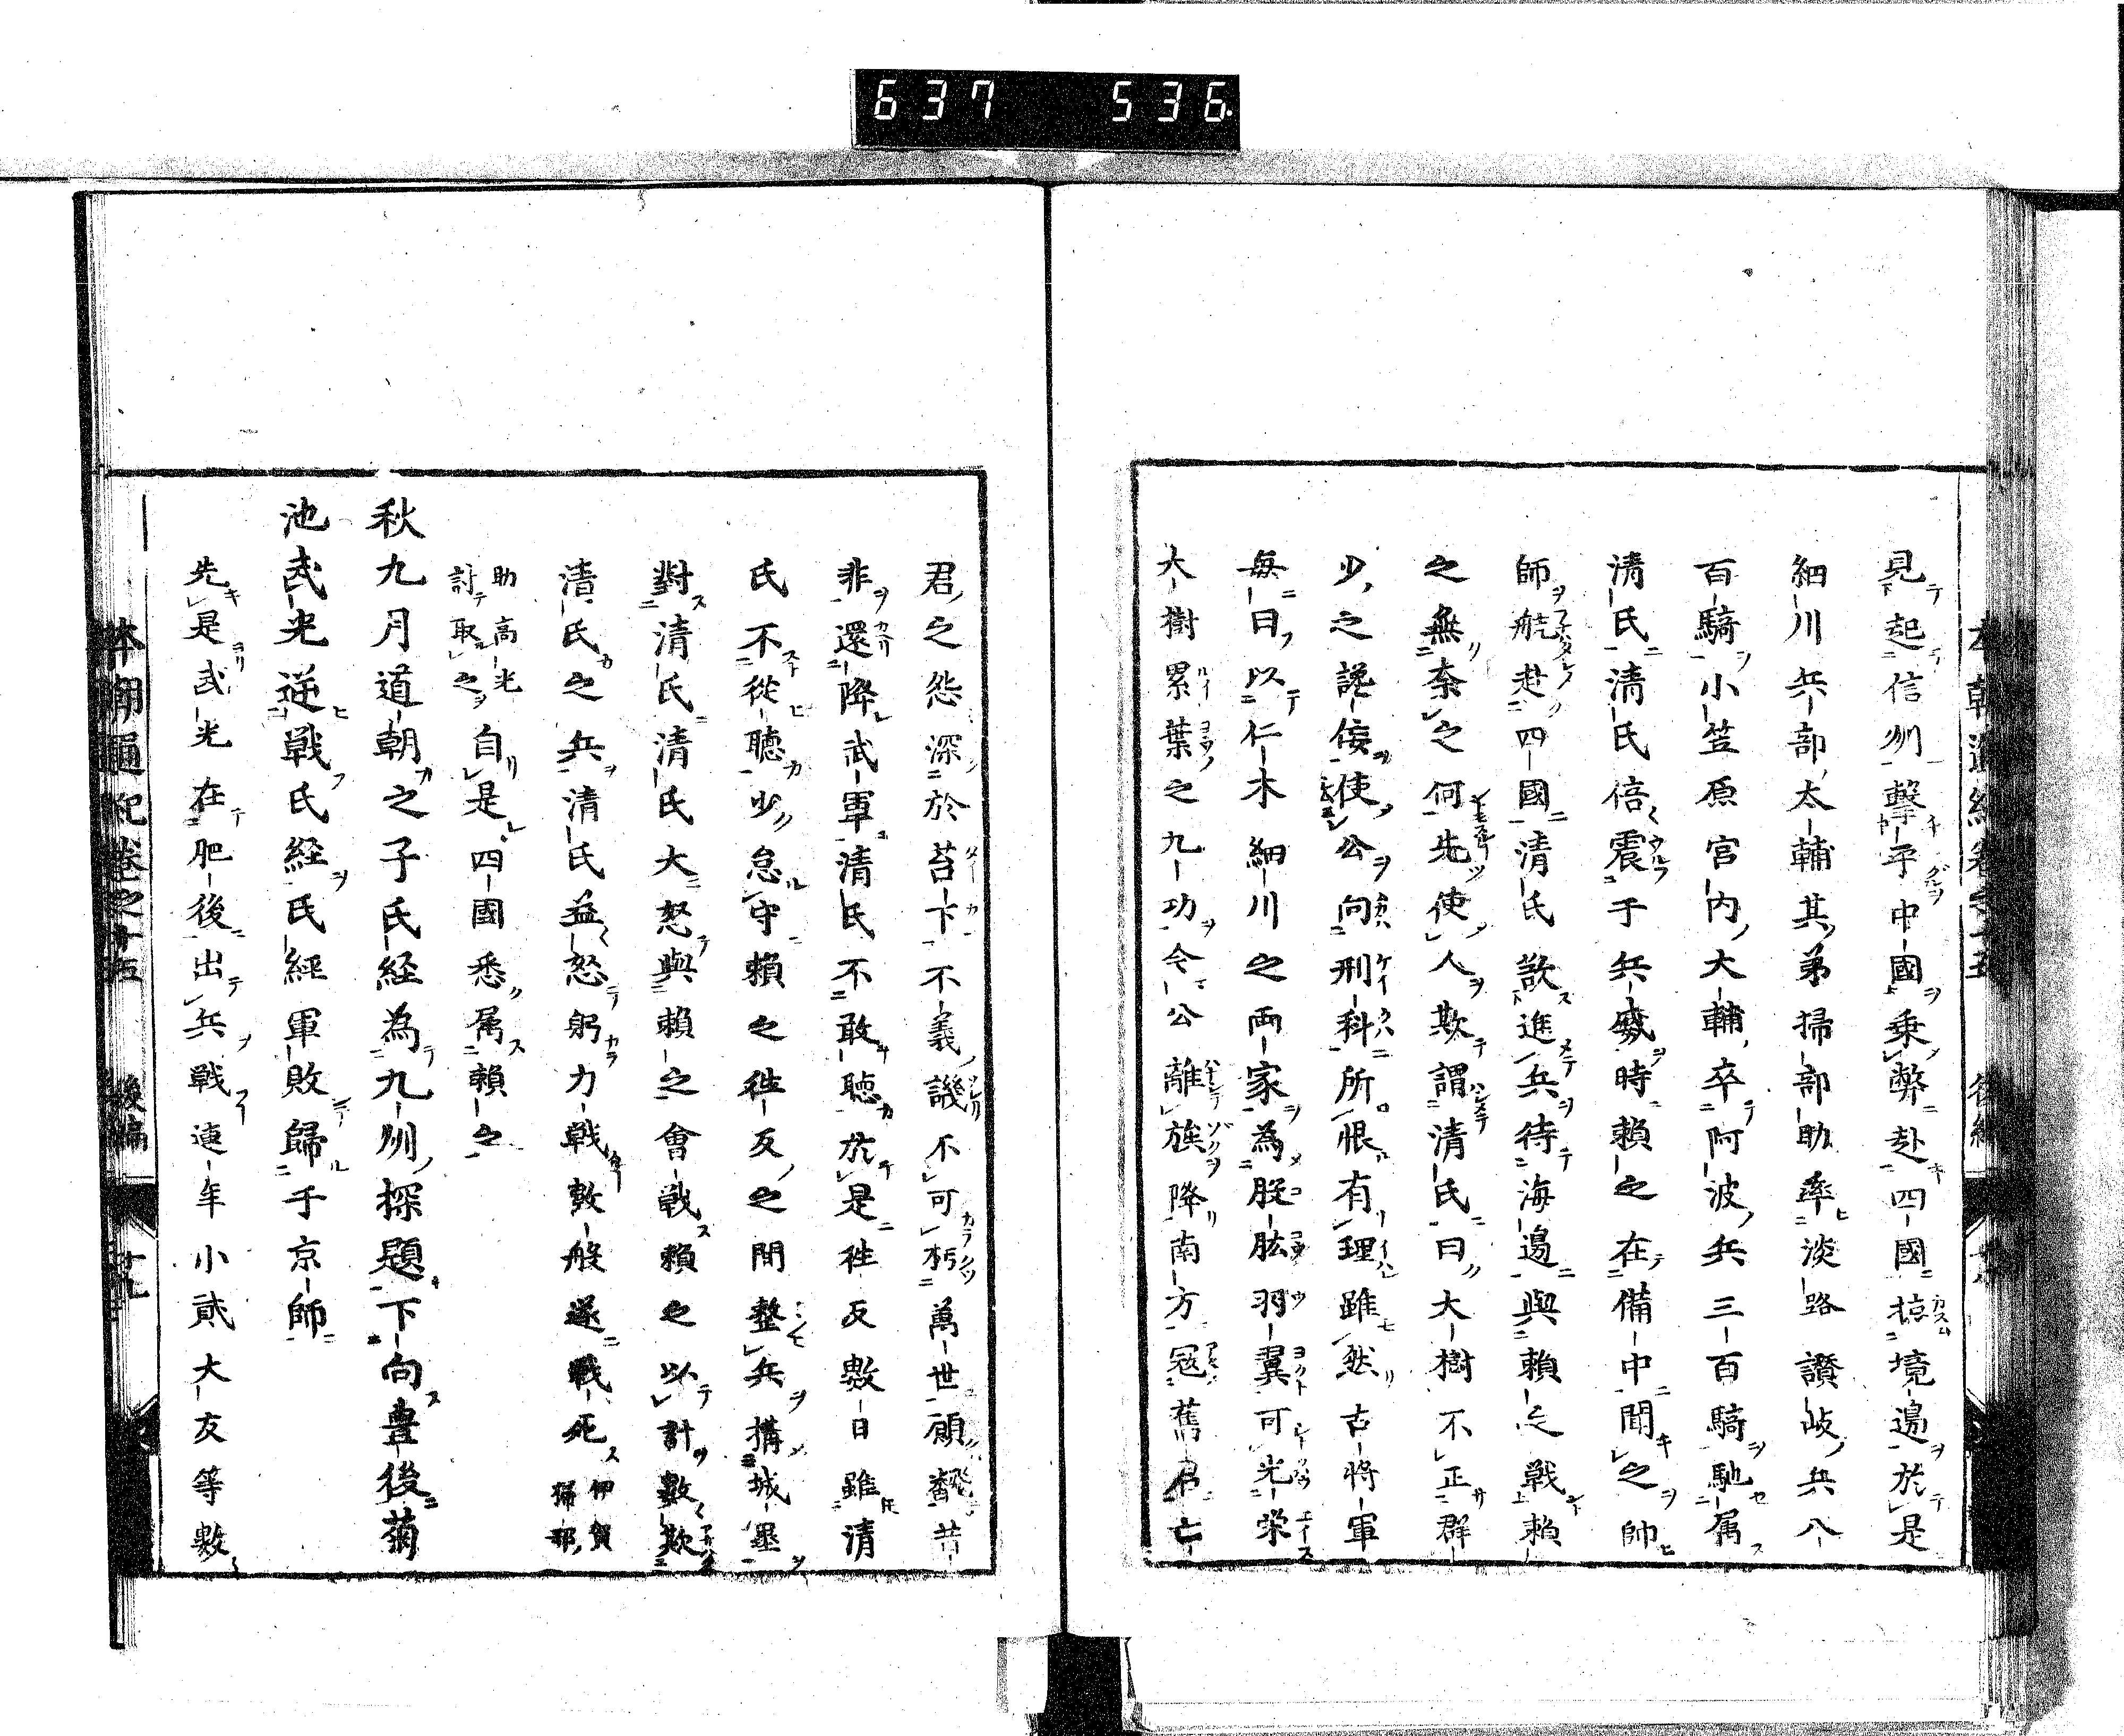 637 536
見起信州擊平中國乗弊赴四國掠境邉於是
細川兵部太輔其弟掃部助率淡路讃岐兵八
百騎小笠原宮内大輔卒阿波兵三百騎馳属
清氏清氏倍震于兵威時賴之在備中聞之帥
師航赴四國清氏欲進兵待海邉與賴之戰賴
之無奈之何先使人欺謂清氏曰大樹不正群
少之讒佞使公向刑科所恨有理雖然古将軍
毎曰以仁木細川之両家為股肱羽翼可光栄
大樹累葉之九功今公離族降南方冦舊君亡
君之怨深於苔下不義譏不可朽萬世願飜昔
非還降武軍清氏不敢聴於是徃反數日雖清
氏不從聴少怠守賴之徃反之間整兵搆城壘
對清氏清氏大怒與賴之會戰賴之以計數欺
清氏之兵清氏益怒躬力戰數般遂戰死 伊賀掃部
助高光討取之自是四國悉属賴之
秋九月道朝之子氏経為九州探題下向豊後菊
池武光逆戰氏経氏經軍敗歸于京師
先是武光在肥後出兵戰連年小貳大友等數
本朝通紀卷之十五 後編 十九